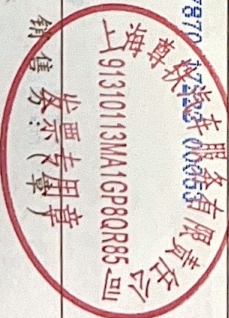 上海尊汽车服务有限责任公司
91310113MA1GP8QR85
发票专用章
销售